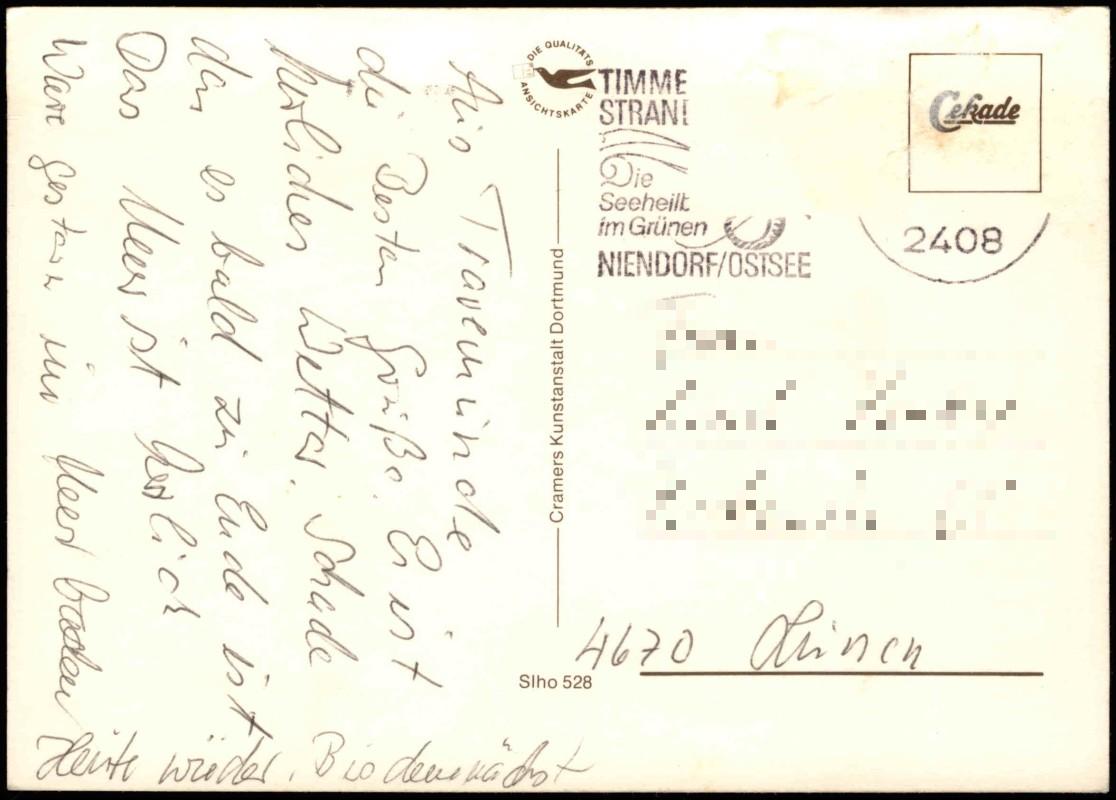 Aus Travemünde
die Besten Grüße. Es ist
herliches Wetter. Schade
das es bald zu Ende ist
Das Meer ist herlich
Ware gestern im Meer baden
Heute wieder. Bis demnächst
DIE QUALITÄTS
ANSICHTSKARTE
Cramers Kunstanstalt Dortmund
Slho 528
TIMME
STRAN
Die
Seeheilt
im Grünen
NIENDORF/OSTSEE
Cekade
2408
4670 Lünen